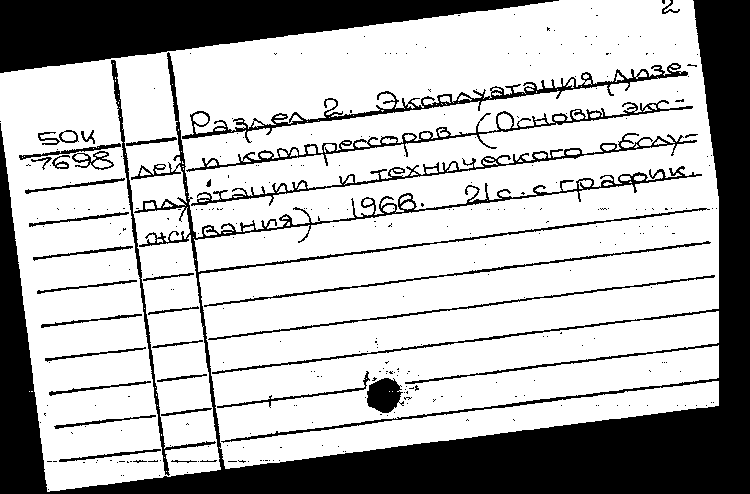 2
Раздел 2. Эксплуатация дизе-
50к
7698
лей и компрессоров. (Основы экс-
плуатации и технического обслу-
живания). 1966. 21с. с график.